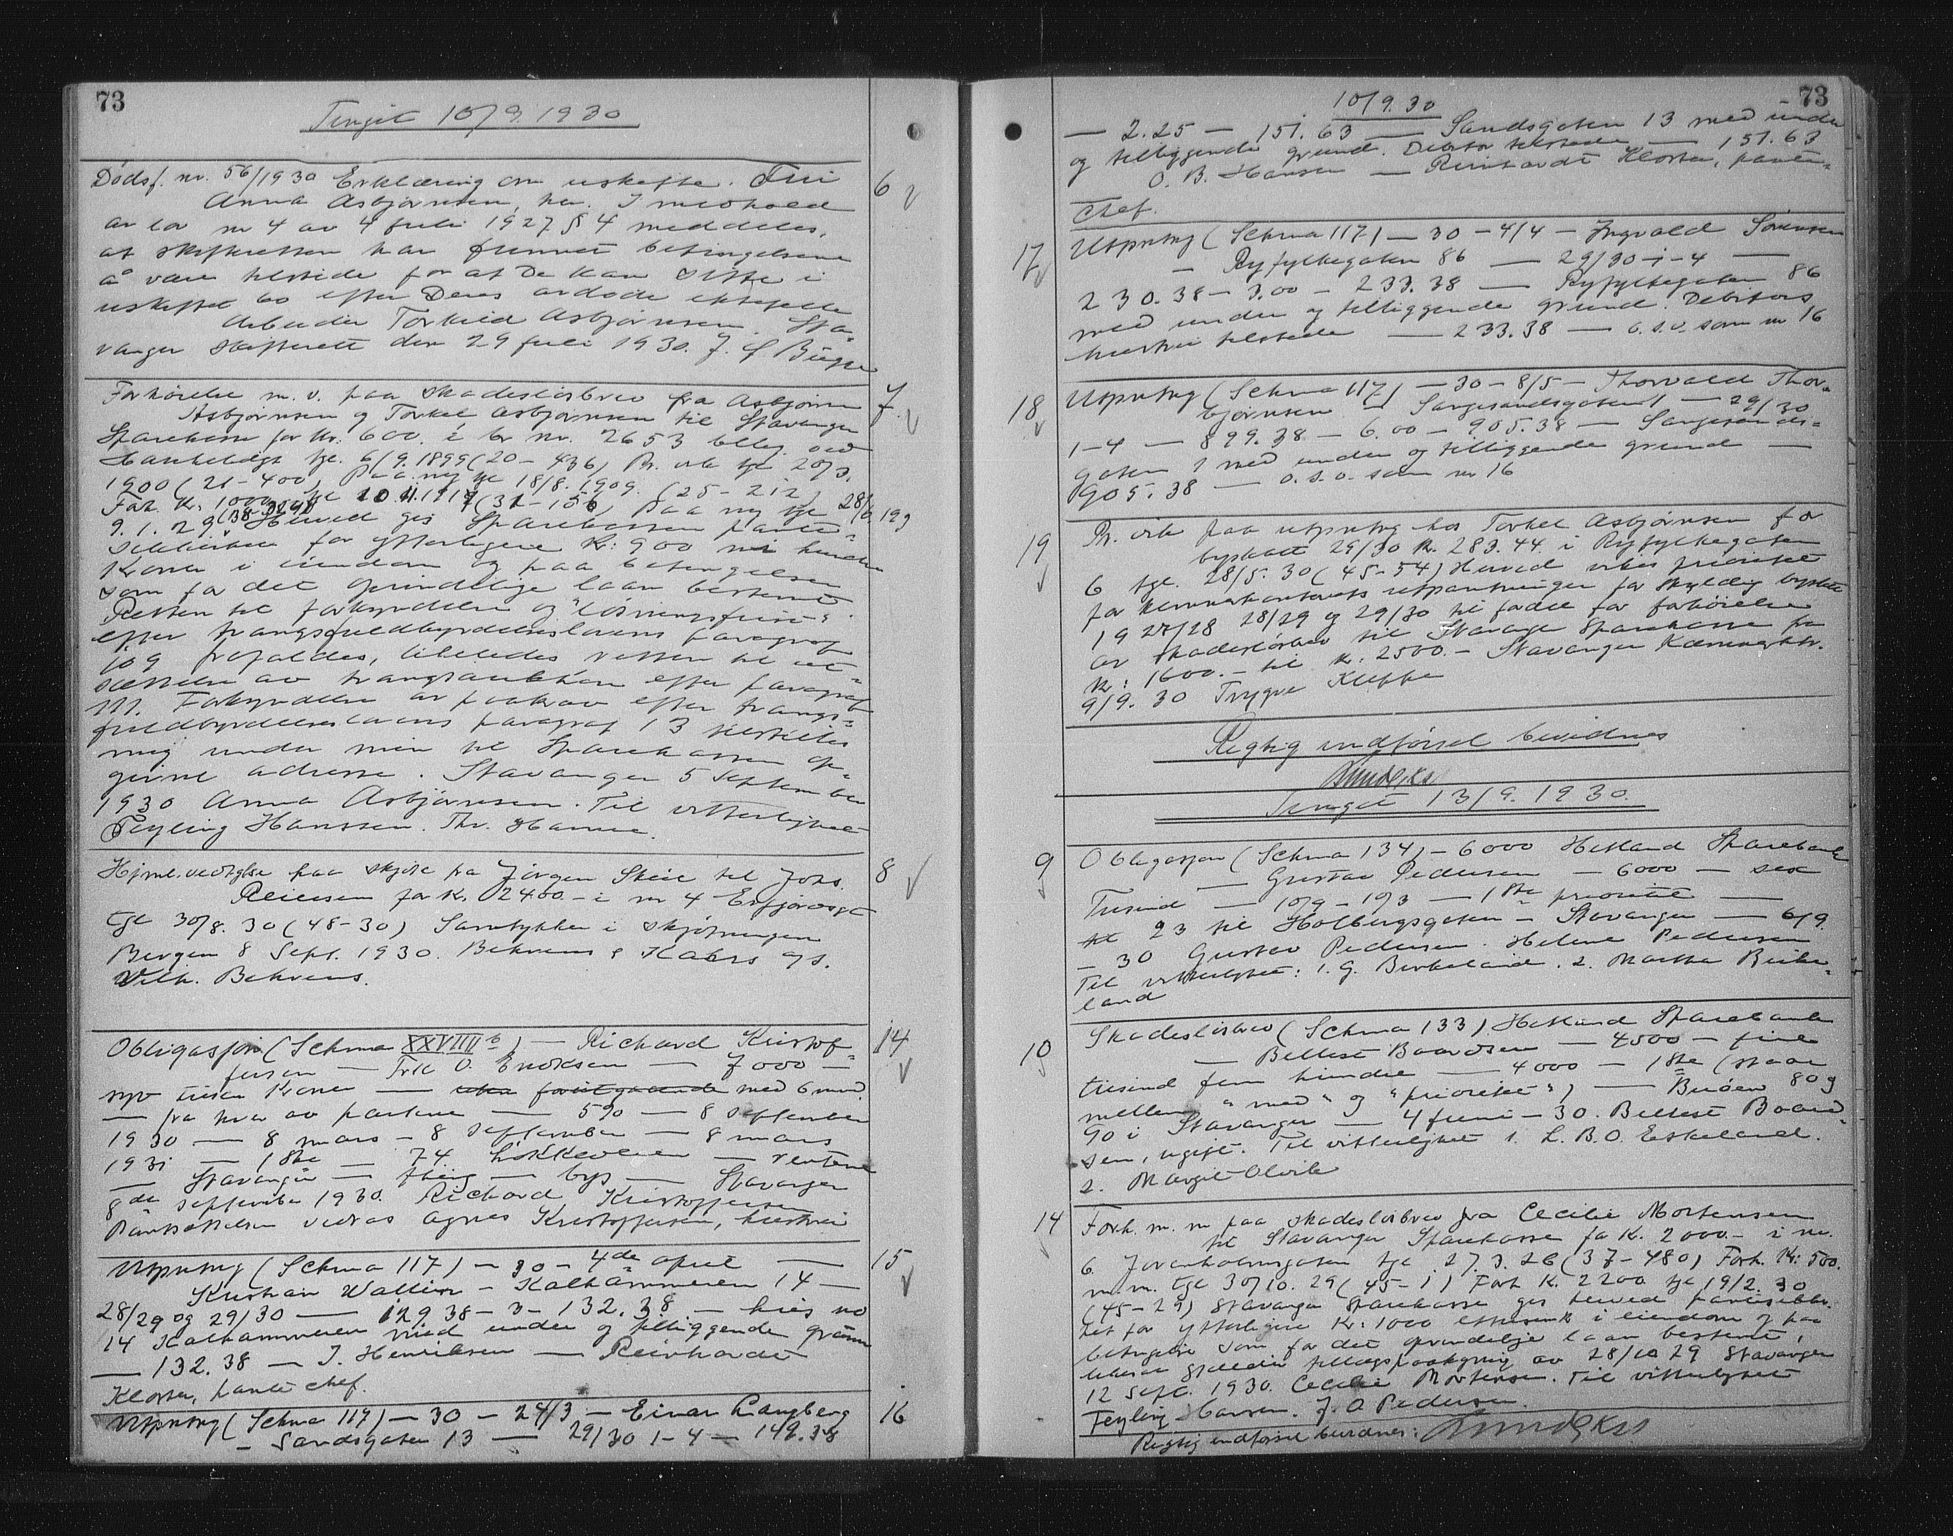 73
Tinget 10/9 1930
Dødsf. nr. 56/1930 Erklæring om uskifte. Fru
Anna Asbjørnsen, her. I medhold
6
av lov nr 4 av 4 juli 1927 § 4 meddeles,
at skifteretten har funnet betingelsene
å være tilstede for at De kan sitte i
uskiftet bo efter Deres avdøde ektefelle
Arbeider Torkild Asbjørnsen. Sta-
vanger skifterett den 29 juli 1930. J. f Bugge
Forhöielse m. v. paa skadeslösbrev fra Asbjørn
7
Asbjørnsen og Torkel Asbjørnsen til Stavanger
Sparekasse for Kr. 600. i lnr nr. 2653 bebg. ved
Haukeligt tgl. 6/9. 1899 (20-436) Pr. vik tgl 20/3.
1900 (21-400) Paa ny tgl 18/8. 1909. (25-212)
Forh. Kr. 1000 tgl 10.11.1917 (31-156) Paa ny tgl 28/6 19
9.1.29 (38-329) Herved gis Sparekassen pante-
sikkerhet for ytterligere Kr: 900 ni hundre
Kroner i eiendom og paa betingelser
som for det oprindelige laan bestemt.
Retten til forkyndelse og "lösningsfrist"
efter tvangsfuldbyrdelseslovens paragraf
109 frafaldes, likeledes retten til ut-
sættelse av tvangsauktion efter paragraf
111. Forkyndelse av paakrav efter tvangs-
fuldbyrdelseslovens paragraf 13 tilstilles
mig under min til Sparekassen op-
givne adresse. Stavanger 5 september
1930 Anna Asbjørnsen. Til vitterlighet
Feyling Hanssen. Thr. Hanne.
Hjml. vedtgelse paa skjöte fra Jörgen Skeie til Johs.
8
Reiersen for Kr. 02400.- i nr 4 Erfjordsgt
tgl 30/8. 30 (48-30) Samtykker i skjötningen
Bergen 8 Sept. 1930. Behrens & Kahrs a/s.
Wilh. Behrens.
Obligasjon (Schma XXVIII b) — Richard Kristof-
14
fersen — Frk O. Enoksen — 7000 —
syv tusen Kroner — uten forutgaaende med 6 mnd.
— fra hver av partene — 5% — 8 september
1930 — 8 mars - 8 september — 8 mars
1931 — 1ste — 74 Lökkeveien — rentene
— Stavanger — ting — bys — Stavanger
8de september 1930. Richard Kristoffersen
Pantsettelsen vedtas Agnes Kristoffersen, hustru
Utpntng (Schma 117) — 30 — 4de april —
15
Kristian Wallin — Kalhammeren 14 —
28/29 og 29/30 — 129.38 - 3 - 132.38 — hus no
14 Kalhammeren med under og tilliggende grunn
— 132.38 — J. Henriksen — Reinhardt
Kloster, pantechef.
Utpntng (Schma 117) — 30 — 24/3 — Einar Langberg
16
— Sandsgaten 13 — 29/30 1-4 — 149.38
10/9. 30
73
— 2.25 — 151.63 — Sandsgaten 13 med under
og tilliggende grund. Debitor tilstede — 151.63
O. B. Hansen — Reinhardt Kloster, pante-
chef.
17
Utpntng (Schma 117) — 30 — 4/4 — Ingvald Sörensen
— Ryfylkegaten 86 — 29/30-1-4 —
230.38 — 3.00 — 233.38 — Ryfylkegaten 86
med under og tilliggende grund. Debitors
hustru tilstede — 233.38 — o.s.v. som nr 16
18
Utpntng (Schma 117) — 30 — 8/5 — Thorvald Thor-
bjørnsen — Sangesandsgaten 1 — 29/30
1-4 — 899.38 — 6.00 — 905.38 — Sangesands-
gaten 1 med under og tilliggende grund —
905.38 — o.s.v. som nr 16
19
Pr. vik paa utpntng hos Torkel Asbjørnsen for
byskatt 29/30 kr. 283.44. i Ryfylkegaten
6 tgl. 28/5. 30 (45-54) Herved vikes prioritet
for kemnerkontorets utpantninger for skyldig byskatt
1927/28 28/29 og 29/30 til fordel for forhöielse
av skadeslösbrev til Stavanger Sparekasse fra
kr: 1600.- til kr. 2500.- Stavanger Kæmnerktr.
9/9. 30 Trygve Kleppe
Rigtig indførsel bevidnes
Tinget 13/9. 1930.
9
Obligasjon (Schma 134) — 6000 Hetland Sparebank
— Gustav Pedersen — 6000 — seks
Tusind — 10/9 - 10/3 — 1ste prioritet —
til 23 til Holbergsgaten — Stavanger — 6/9.
— 30 Gustav Pedersen. Helene Pedersen
Til vitterlighet: 1. G. Birkeland. 2. Martha Birke-
land
10
Skadeslösbrev (Schma 133) Hetland Sparebank
— Bellest Baardsen — 4500 — fire
tusind fem hundre — 4000 — 1ste (staar
mellem "med" og "prioritet") — Buöen 80 g
90 i Stavanger — 4 juni — 30. Bellest Baard-
sen, ugift. Til vitterlighet 1. L. B. O. Eskeland.
2. Margit Olvik
14
Forh. m. m paa skadeslösbrev fra Cecilie Mortensen
til Stavanger Sparekasse for Kr. 2000.- i nr.
6 Jorenholmsgaten tgl. 27.3.26 (37-480) Forh. Kr: 500.
m.m. tgl 30/10. 29 (45-1) Forh K. 2200 tgl 19/2. 30
(45-29) Stavanger Sparekasse gis herved pantesikker-
het for ytterligere Kr: 1000 ettusen i eiendom og paa
betingelse som for det oprindelige laan bestemt,
likesaa gjelder tillægspaategning av 28/10 29 Stavanger
12 Sept. 1930. Cecilie Mortensen. Til vitterlighet
Feyling Hansen. J. O Pedersen.
Rigtig indførsel bevidnes: